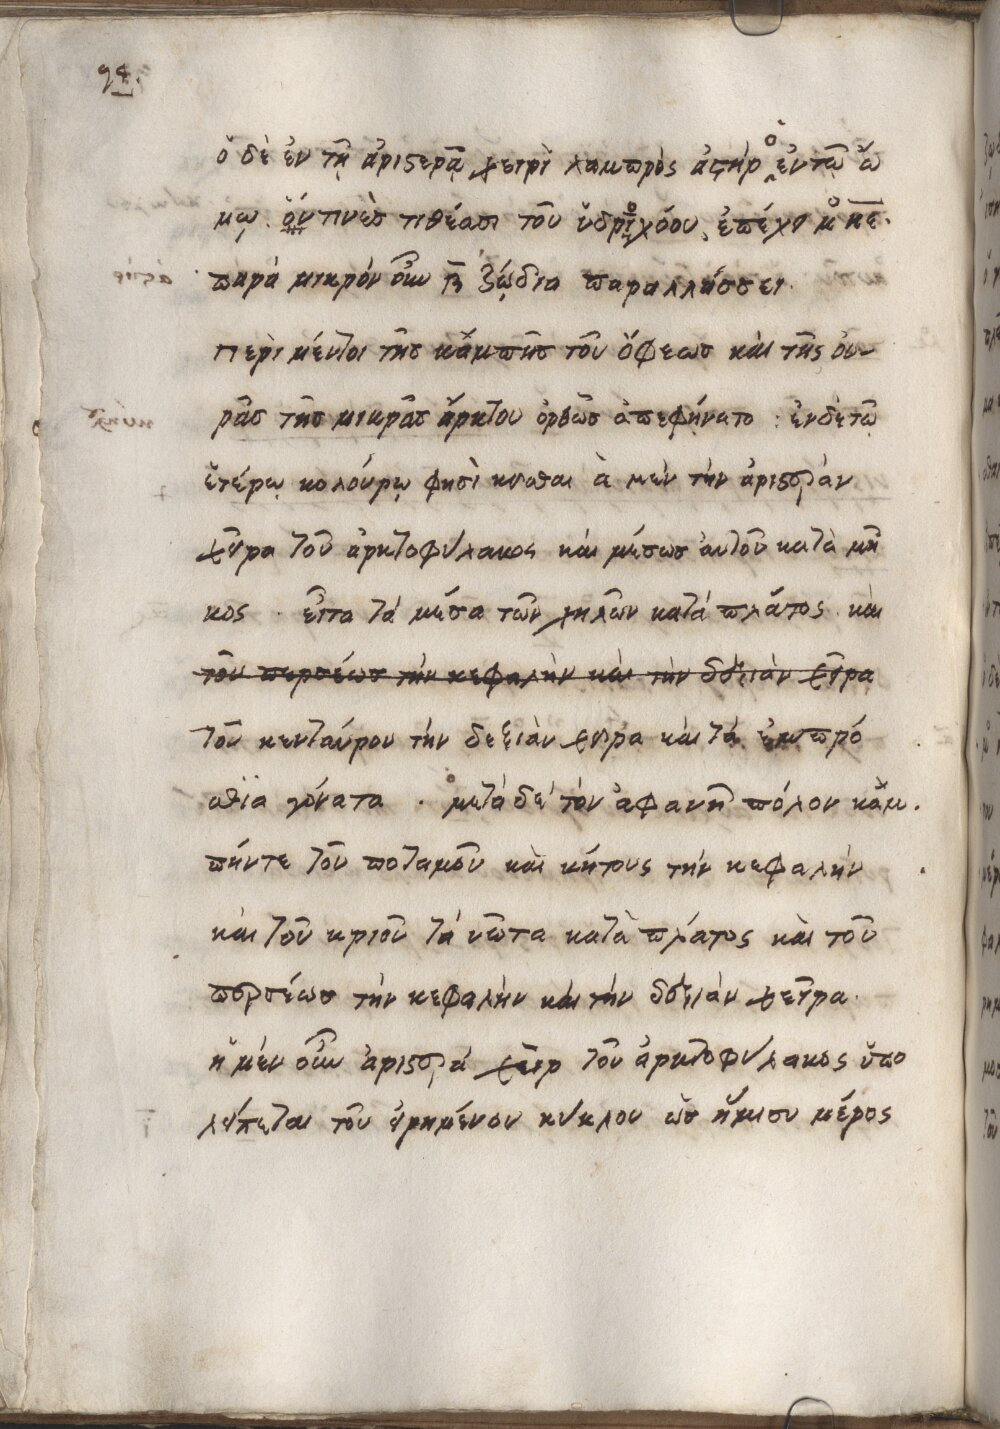 94.
ὁ δὲ ἐν τῇ ἀριστερᾷ χειρὶ λαμπρὸς ἀστὴρ ὁ ἐν τῷ ὤ
μῳ ὅν τινὲς τιθέασι τοῦ ὑδριχόου, ἐπέχει μ̊ κε.
παρὰ μικρὸν οὖν β ζῴδια παραλλάσσει.
περὶ μέντοι τῆς καμπῆς τοῦ ὄφεως καὶ τῆς οὐ-
ρᾶς τῆς μικρᾶς ἄρκτου ὀρθῶς ἀπεφήνατο : ἐν δὲ τῷ
ἑτέρῳ κολούρῳ φησὶ κεῖσθαι ἃ μὲν τὴν ἀριστερὰν
χεῖρα τοῦ ἀρκτοφύλακος καὶ μέσως αὐτοῦ κατὰ μῆ
κος . εἶτα τὰ μέσα τῶν χηλῶν κατὰ πλάτος . καὶ
τοῦ περσέως τὴν κεφαλὴν καὶ τὴν δεξιὰν χεῖρα
τοῦ κενταύρου τὴν δεξιὰν χεῖρα καὶ τὰ ἐμπρό
σθϊα γόνατα . μετὰ δὲ τὸν ἀφανῆ πόλον κάμ.
πήν τε τοῦ ποταμοῦ καὶ κήτους τὴν κεφαλὴν
καὶ τοῦ κριοῦ τὰ νῶτα κατὰ πλάτος καὶ τοῦ
περσέως τὴν κεφαλὴν καὶ τὴν δεξιὰν χεῖρα.
ἡ μὲν οὖν ἀριστερὰ χεὶρ τοῦ ἀρκτοφύλακος ὑπο
λείπεται τοῦ εἰρημένου κύκλου ὡς ἥμισυ μέρος